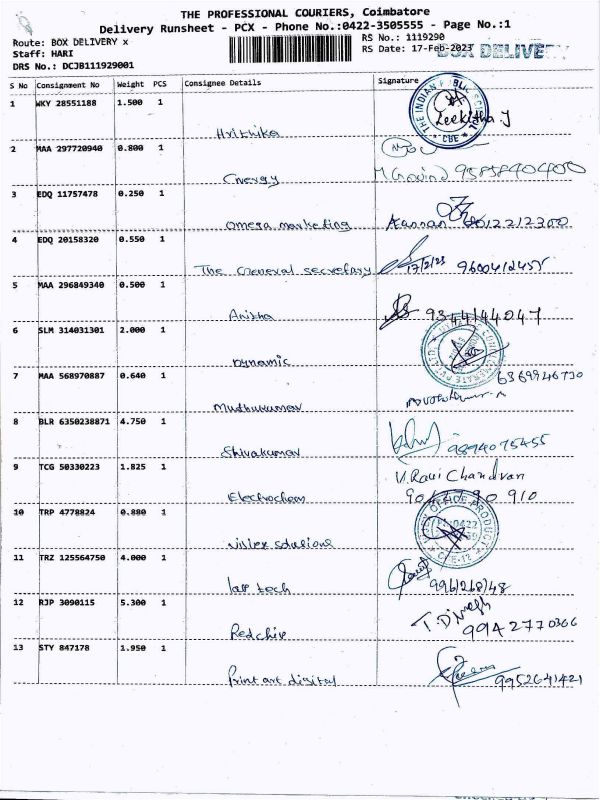 THE PROFESSIONAL COURIERS, Coimbatore
Delivery Runsheet - PCX - Phone No.:0422-3505555 - Page No.:1
Route: BOX DELIVERY x
Staff: HARI
DRS No.: DCJB111929001
RS No.: 1119290
RS Date: 17-Feb-2023
BOX DELIVERY
S No Consignment No Weight PCS Consignee Details Signature
1 WKY 28551188 1.500 1 Hrithika
THE INDIAN PUBLIC CBE
2 MAA 297720940 0.800 1 Cnergy
3 EDQ 11757478 0.250 1 Omega marketing Kannan
4 EDQ 20158320 0.550 1 The General secretary 17/2/23 9600412455
5 MAA 296849340 0.500 1 Anisha 9344144047
6 SLM 314031301 2.000 1 Dynamic
7 MAA 568970887 0.640 1 Muthukumar 6369946730
8 BLR 6350238871 4.750 1 Shivakumar 9894075455
9 TCG 50330223 1.825 1 Electrochem V. Ravi Chandran
10 TRP 4778824 0.880 1 solutions
OFFICE PRODUCT
11 TRZ 125564750 4.000 1 lab tech 9961268148
12 RJP 3090115 5.300 1 Redchie T. Dinesh
9942770366
13 STY 847178 1.950 1 Print art digital 9952641421